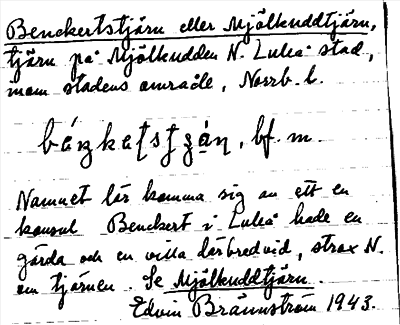 Benckertstjärn eller Mjölkuddtjärn,
tjärn på Mjölkudden N. Luleå stad,
inom stadens område, Norrb. l.
bf. m.
Namnet lär komma sig av att en
konsul Benckert i Luleå hade en
gärda och en villa därbredvid, strax N.
om tjärnen. Se Mjölkuddtjärn.
Edvin Brännström 1943.